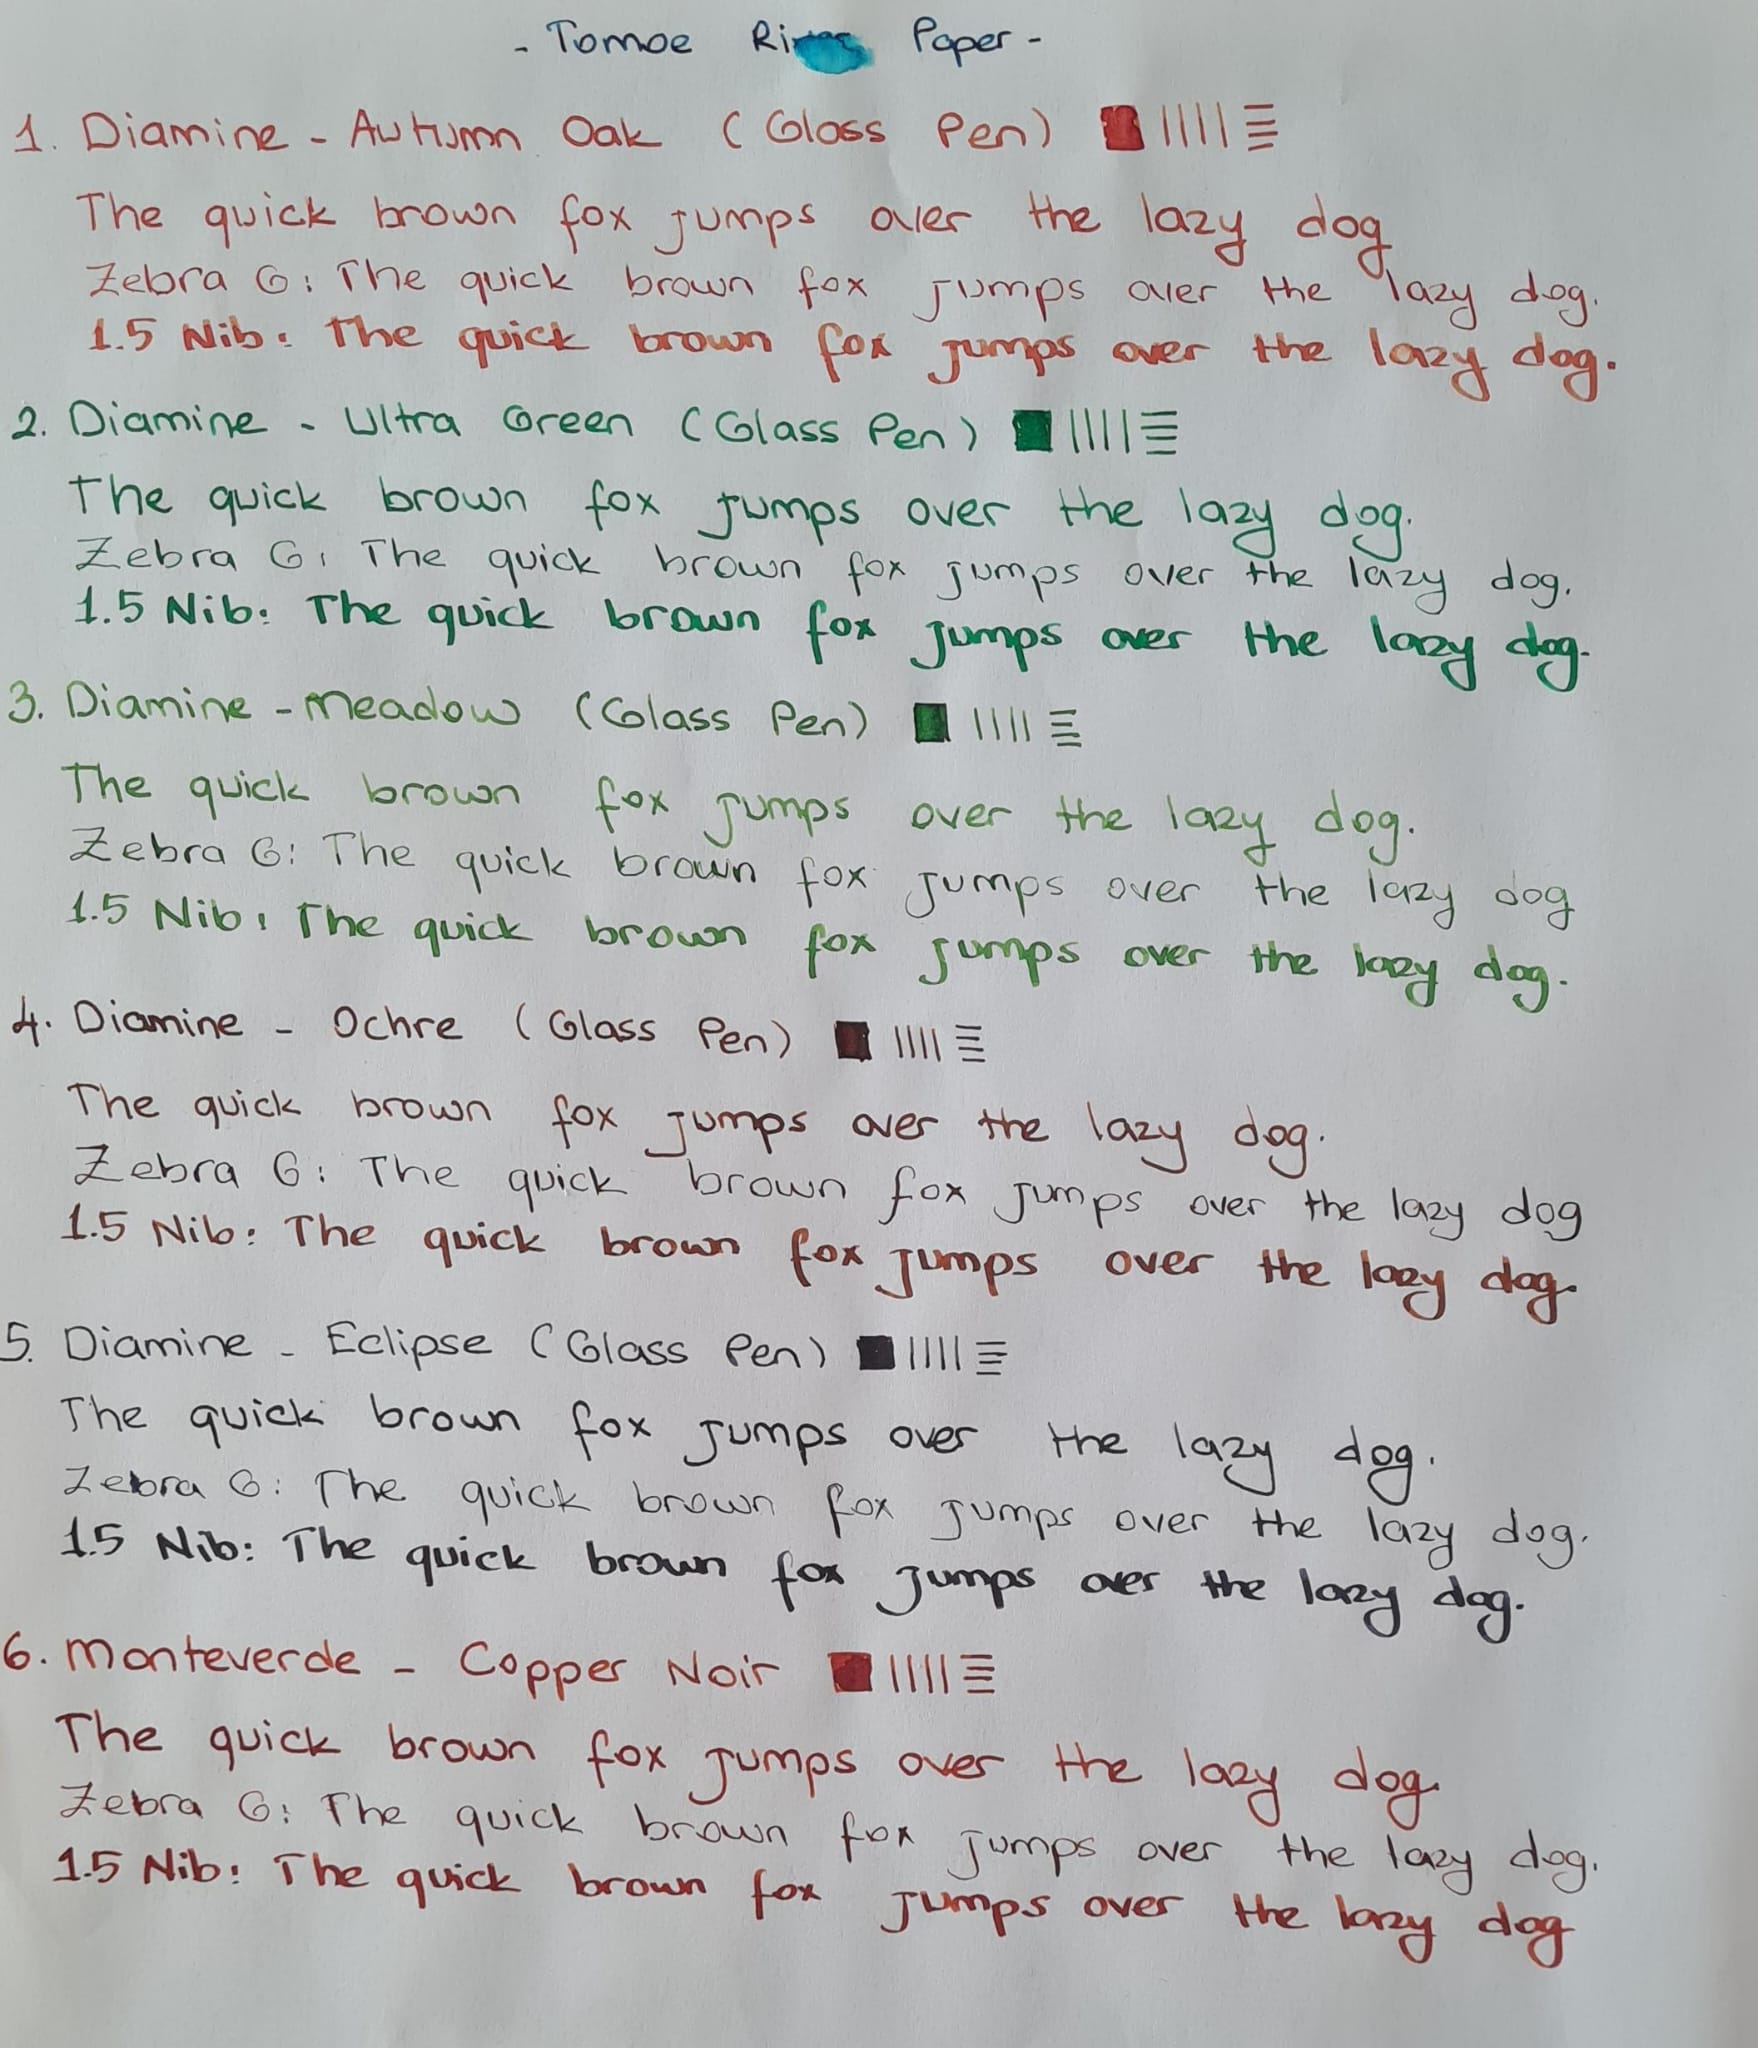 - Tomoe River Paper -
1. Diamine - Autumn Oak (Glass Pen)
The quick brown fox jumps over the lazy dog
Zebra G: The quick brown fox jumps over the lazy dog.
1.5 Nib: The quick brown fox jumps over the lazy dog.
2. Diamine - Ultra Green (Glass Pen)
The quick brown fox jumps over the lazy dog.
Zebra G: The quick brown fox jumps over the lazy dog.
1.5 Nib: The quick brown fox jumps over the lazy dog.
3. Diamine - Meadow (Glass Pen)
The quick brown fox jumps over the lazy dog.
Zebra G: The quick brown fox jumps over the lazy dog
1.5 Nib: The quick brown fox jumps over the lazy dog.
4. Diamine - Ochre (Glass Pen)
The quick brown fox jumps over the lazy dog.
Zebra G: The quick brown fox jumps over the lazy dog
1.5 Nib: The quick brown fox jumps over the lazy dog.
5. Diamine - Eclipse (Glass Pen)
The quick brown fox jumps over the lazy dog.
Zebra G: The quick brown fox jumps over the lazy dog.
1.5 Nib: The quick brown fox jumps over the lazy dog.
6. Monteverde - Copper Noir
The quick brown fox jumps over the lazy dog.
Zebra G: The quick brown fox jumps over the lazy dog.
1.5 Nib: The quick brown fox jumps over the lazy dog